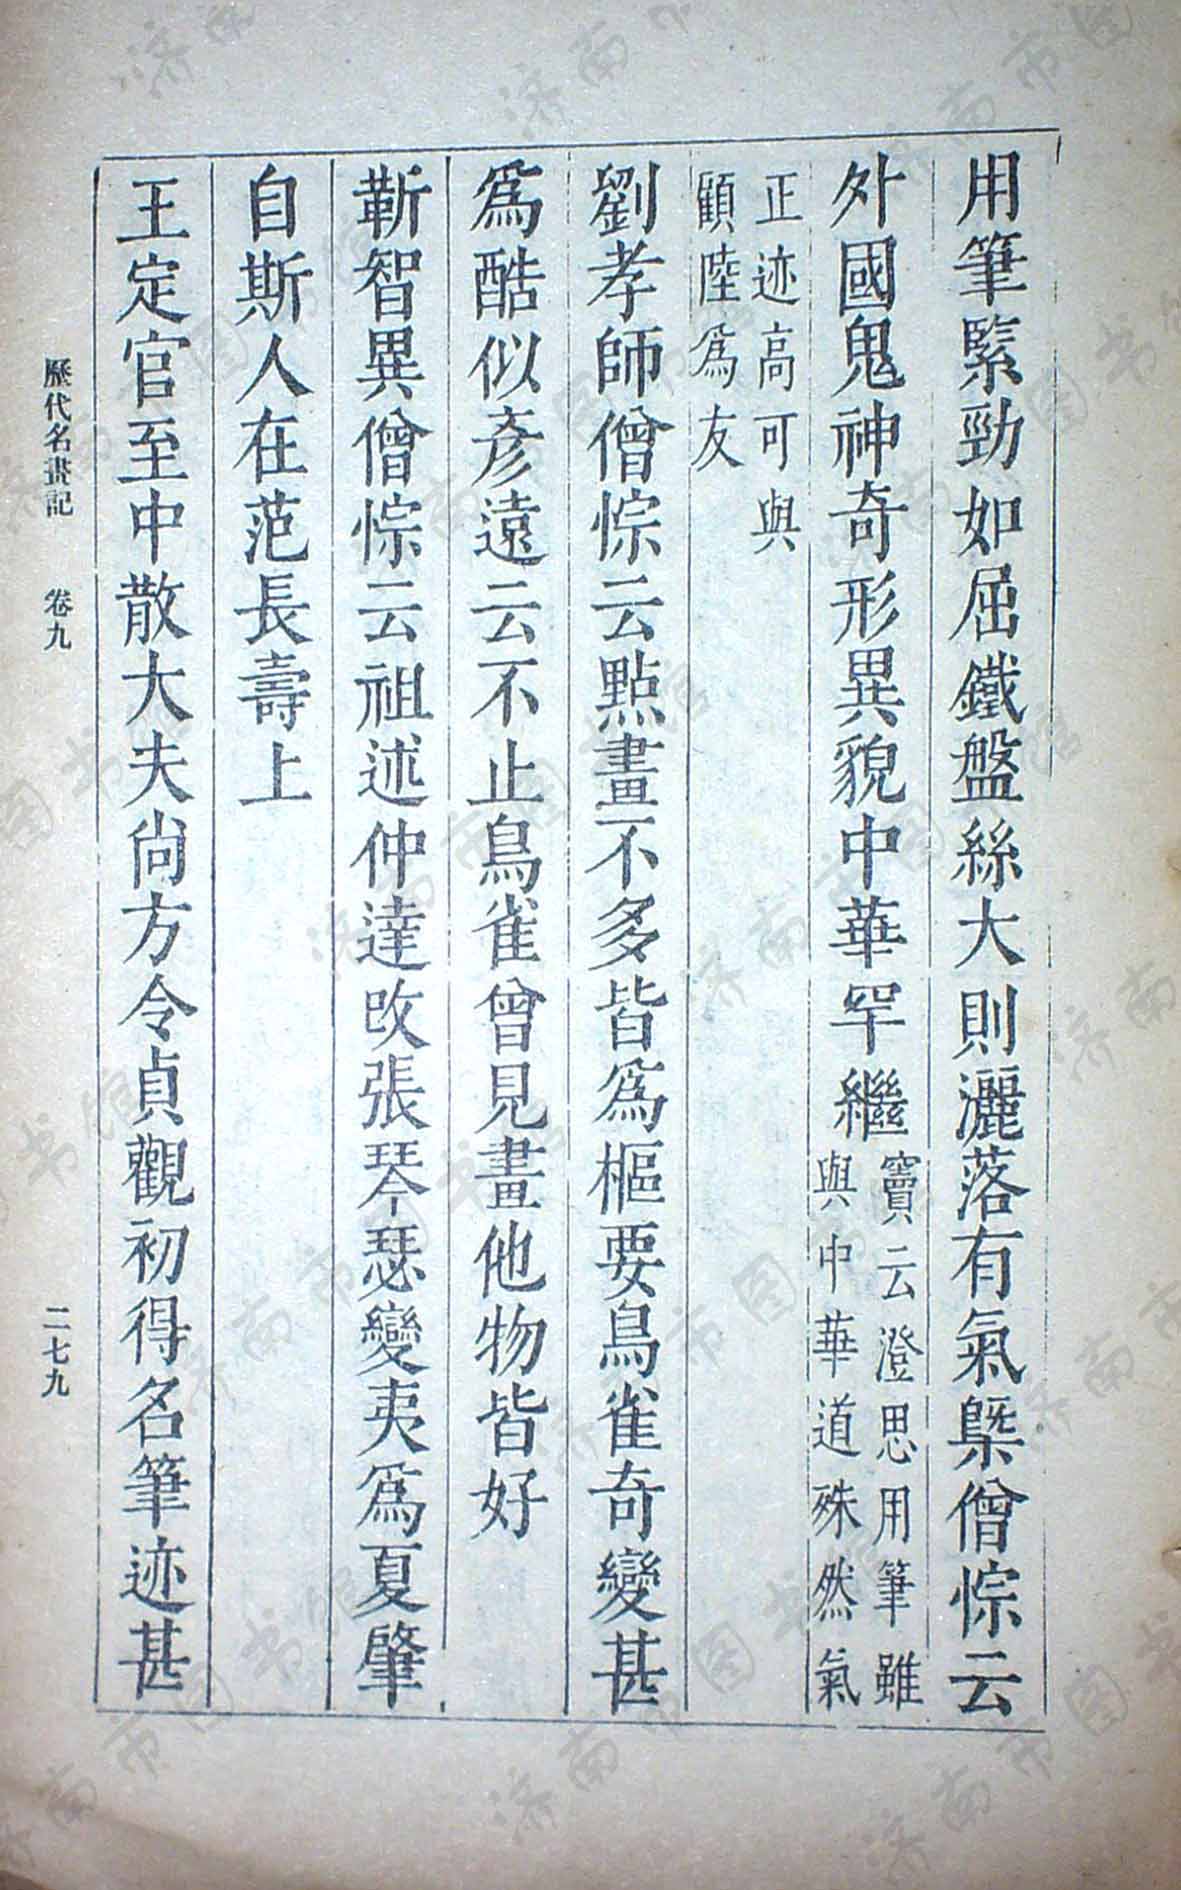 用筆緊勁如屈鐵盤絲大則灑落有氣槩僧悰云
外國鬼神奇形異貌中華罕繼
竇云澄思用筆雖
與中華道殊然氣
正迹高可與
顧陸爲友
劉孝師僧悰云點畫不多皆爲樞要鳥雀奇變甚
爲酷似彥遠云不止鳥雀曾見畫他物皆好
靳智異僧悰云祖述仲達改張琴瑟變夷爲夏肇
自斯人在范長壽上
王定官至中散大夫尙方令貞觀初得名筆迹甚
歷代名畫記 卷九 二七九
济南市图书馆